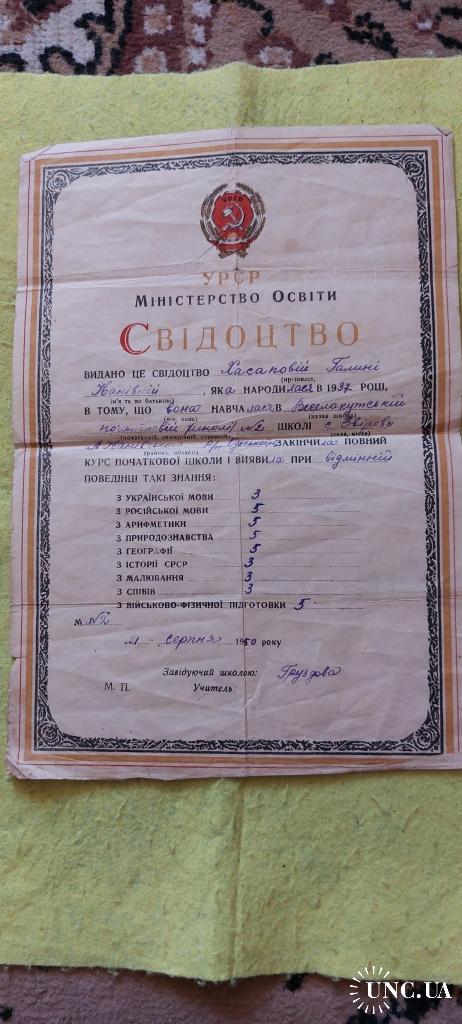 УРСР
УРСР
МІНІСТЕРСТВО ОСВІТИ
СВІДОЦТВО
ВИДАНО ЦЕ СВІДОЦТВО Хасаповій Галині
(прізвище,
Іванівній, ЯКА НАРОДИлася В 1937 РОЦІ,
ім'я та по батькові)
В ТОМУ, ЩО вона НАВЧАлася В Веселокутській
(він, вона) (назва школи)
початковій школі №2 ШКОЛІ с.
(початковій, семирічній, середній) (села, міста)
р/н Одської ЗАКІНЧИла ПОВНИЙ
(району, області)
КУРС ПОЧАТКОВОЇ ШКОЛИ І ВИЯВИла ПРИ відмінній
ПОВЕДІНЦІ ТАКІ ЗНАННЯ:
З УКРАЇНСЬКОЇ МОВИ 3
З РОСІЙСЬКОЇ МОВИ 5
З АРИФМЕТИКИ 5
З ПРИРОДОЗНАВСТВА 5
З ГЕОГРАФІЇ 5
З ІСТОРІЇ СРСР 3
З МАЛЮВАННЯ 3
З СПІВІВ 3
З ВІЙСЬКОВО-ФІЗИЧНОЇ ПІДГОТОВКИ 5
№ №2
серпня 1950 року
Завідуючий школою: Груздова
М. П. Учитель:
UNC.UA